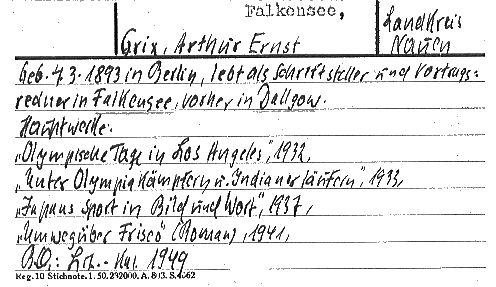 Falkensee,
Landkreis
Nauen
Grix, Arthur Ernst
Geb. 7.3.1893 in Berlin, lebt als Schriftsteller und Vortrags=
redner in Falkensee, vorher in Dallgow.
Hauptwerke:
„Olympische Tage in Los Angeles", 1932,
„Unter Olympiakämpfern u. Indianerläufern", 1933,
„Japans Sport in Bild und Wort", 1937,
„Umweg über Frisco" (Roman), 1941,
1949
Reg. 10 Stichnote. 1. 50. 232000. A. 803. S. 4662